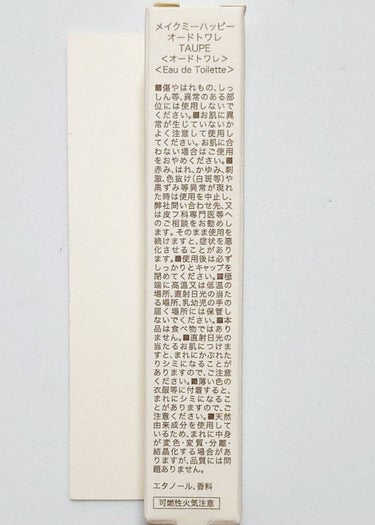 メイクミーハッピー
オードトワレ
TAUPE
＜オードトワレ＞
＜Eau de Toilette＞
■傷やはれもの、しっ
しん等、異常のある部
位には使用しないで
ください。■お肌に異
常が生じていないか
よく注意して使用し
てください。お肌に合
わない場合はご使用
をおやめください。■
赤み、はれ、かゆみ、刺
激、色抜け（白斑等）や
黒ずみ等異常が現れ
た時は使用を中止し、
弊社問い合わせ先、又
は皮フ科専門医等へ
のご相談をお勧めし
ます。そのまま使用を
続けますと、症状を悪
化させることがありま
す。■使用後は必ず
しっかりとキャップを
閉めてください。■極
端に高温又は低温の
場所、直射日光の当た
る場所、乳幼児の手の
届く場所には保管し
ないでください。■本
品は食べ物ではあり
ません。■直射日光の
当たるお肌につけま
すと、まれにかぶれた
りシミになることが
ありますので、ご注意
ください。■薄い色の
衣服等に付着すると、
まれにシミになるこ
とがありますので、ご
注意ください。■天然
由来成分を使用して
いるため、まれに中身
が変色・変質・分離・
結晶化する場合があ
りますが、品質には問
題ありません。
エタノール、香料
可燃性火気注意